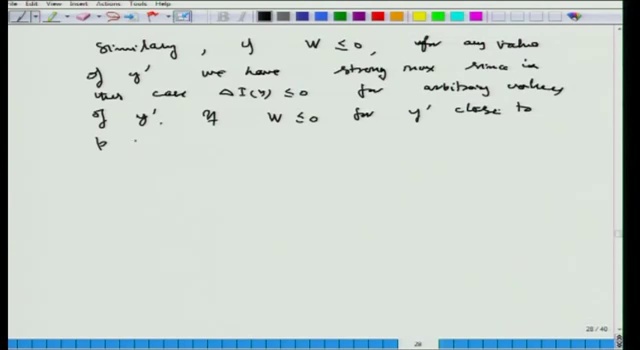 Edit View Insert Actions Tools Help
Similarly, if W ≤ 0, for any value
of y' we have strong max since in
this case ΔI(y) ≤ 0 for arbitrary values
of y'. If W ≤ 0 for y' close to
p
28 / 40
28